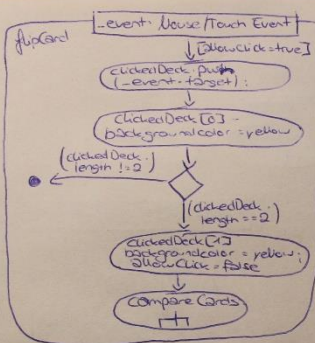 flipCard
_event: Mouse/Touch Event
[allowClick=true]
clickedDeck.push
(_event.target);
clickedDeck[0].
backgroundcolor = yellow
(clickedDeck.
length != 2)
(clickedDeck.
length == 2)
clickedDeck[1]
backgroundcolor = yellow;
allowClick = false
compare Cards